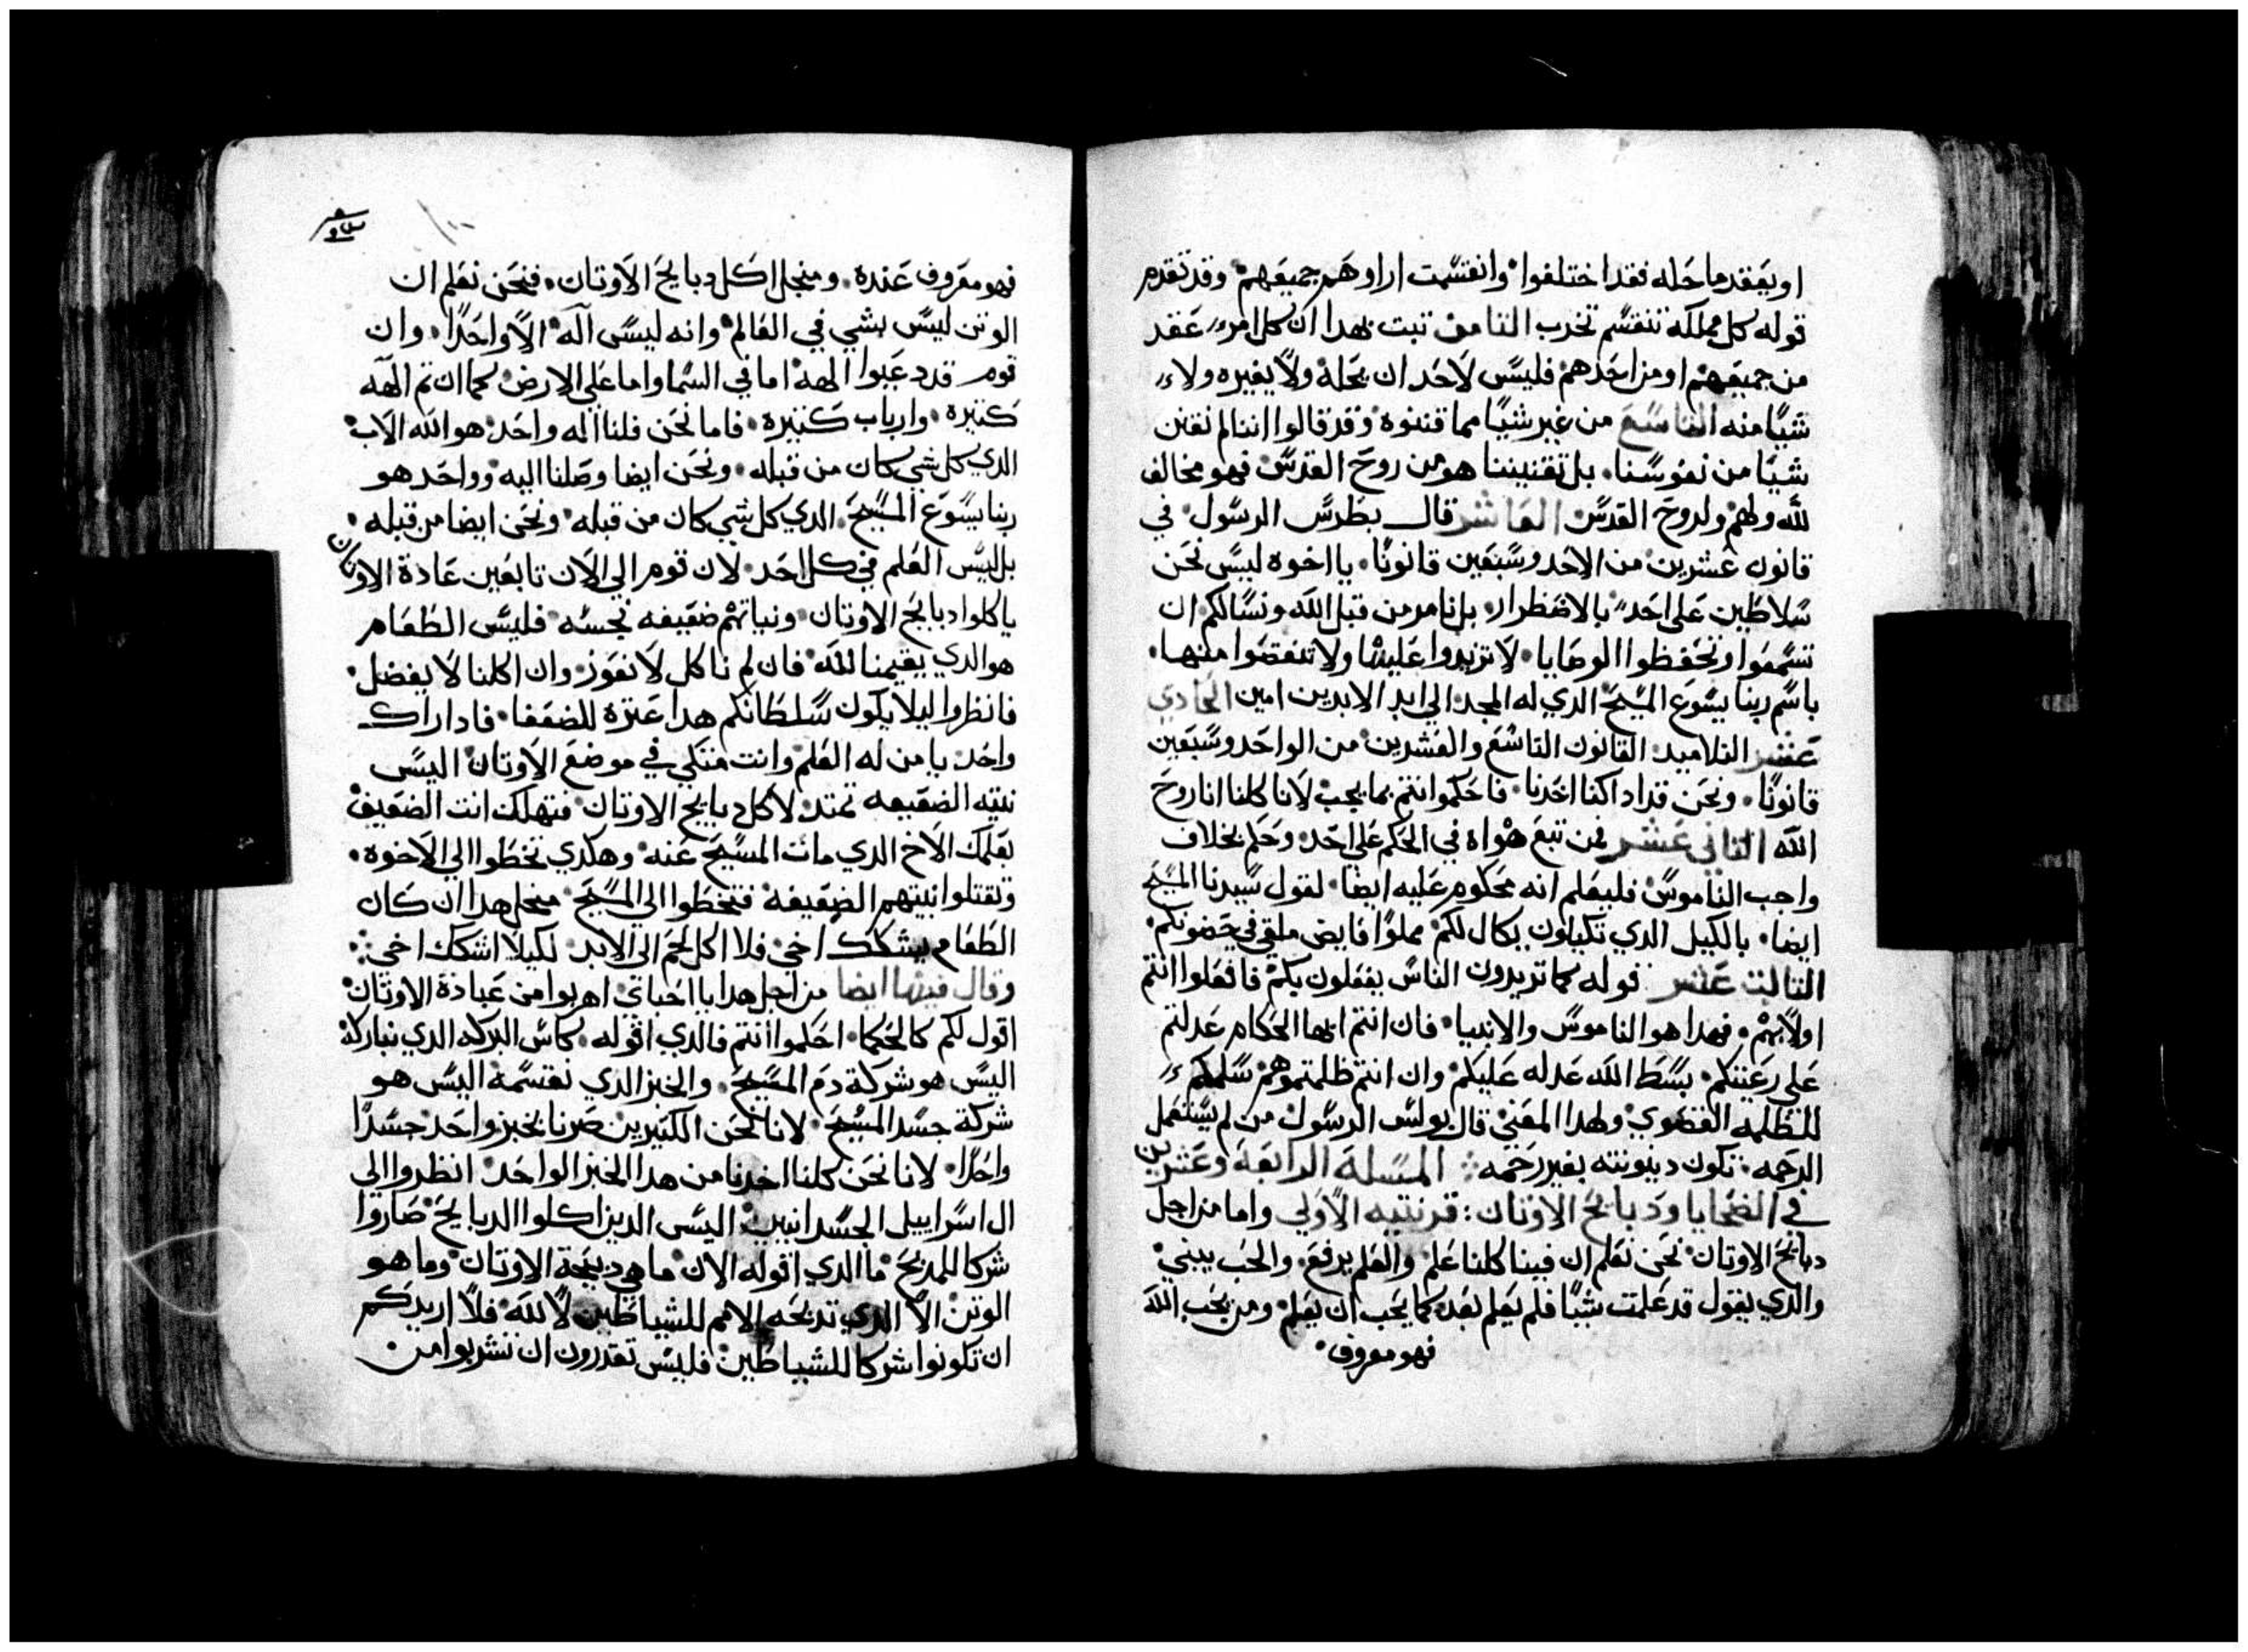 او يعقد ما حله فقد اختلفوا وانقسمت اراوهم جميعهم وقد تقدم
قوله كل مملكه تنقسم تخرب التامن تبت بهدا ان كل امرء عقد
من جميعهم او من احدهم فليس لاحد ان يحله ولا يغيره ولا
شيًا منه التاسع من غير شيًا مما قننوه وقد قالوا اننا لم نقنن
شيًا من نفوسنا بل تقنيننا هو من روح القدس فهو مخالف
لله ولهم ولروح القدس العاشر قال بطرس الرسول في
قانون عشرين من الاحد وسبعين قانونًا يا اخوه ليس نحن
سلاطين على احد بالاضطرار بل نامر من قبل الله ونسالكم ان
تسمعوا وتحفظوا الوصايا لا تزيدوا عليها ولا تنقصوا منها
باسم ربنا يسوع المسيح الدي له المجد الي ابد الابدين امين الحادي
عشر التلاميد القانون التاسع والعشرين من الواحد وسبعين
قانونًا ونحن قد ادا كنا اخدنا فاحكموا انتم بما يجب لانا كلنا انا روح
الله التاني عشر فمن تبع هواه في الحكم على احد وحكم بخلاف
واجب الناموس فليعلم انه محكوم عليه ايضا لقول سيدنا المسيح
ايضا بالكيل الدي تكيلون يكال لكم مملوًا فايض ملقي في حضونكم
التالت عشر قوله كما تريدون الناس يفعلون بكم فافعلوا انتم
اولا بهم فهدا هو الناموس والانبيا فان انتم ايها الحكام عدلتم
على رعيتكم بسط الله عدله عليكم وان انتم ظلمتموهم سلمكم
للظلمه القصوي ولهدا المعني قال بولس الرسول من لم يستعمل
الرحمه تكون دينونته بغير رحمه المسله الرابعه وعشرين
في الضحايا ودبايح الاوتان قرنتيه الاولي واما من اجل
دبايح الاوتان نحن نعلم ان فينا كلنا علم والعلم يرفع والحب يبني
والدي يقول قد علمت شيًا فلم يعلم بعد كما يجب ان يعلم ومن يحب الله
فهو معروف
فهو معروف عنده ومنجل اكل دبايح الاوتان فنحن نعلم ان
الوتن ليس بشي في العالم وانه ليس اله الا واحدًا وان
قوم قد دعيوا الهة اما في السما واما على الارض كما ان تم الهه
كتيره وارباب كتيره فاما نحن فلنا اله واحد هو الله الاب
الدي كل شي كان من قبله ونحن ايضا وصلنا اليه وواحد هو
ربنا يسوع المسيح الدي كل شي كان من قبله ونحن ايضا من قبله
بل ليس العلم في كل احد لان قوم الي الان تابعين عادة الاوتان
ياكلوا دبايح الاوتان ونياتهم ضعيفه نجسه فليس الطعام
هو الدي يقيمنا لله فان لم ناكل لا نعوز وان اكلنا لا يفضل
فانظروا ليلا يكون سلطانكم هدا عتره للضعفا فادا راك
واحد يا من له العلم وانت متكي في موضع الاوتان اليس
نيته الضعيفه تمتد لاكل دبايح الاوتان فتهلك انت الضعيف
بعلمك الاخ الدي مات المسيح عنه وهكدي تخطوا الي الاخوه
وتقتلوا نيتهم الضعيفه فتخطوا الي المسيح منجل هدا ان كان
الطعام يشكك اخي فلا اكل لحم الي الابد لكيلا اشكك اخي
وقال فيها ايضا من اجل هدا يا احباي اهربوا من عبادة الاوتان
اقول لكم كالحكما احكموا انتم فالدي اقوله كاس البركه الدي نباركه
اليس هو شركة دم المسيح والخبز الدي نقسمه اليس هو
شركة جسد المسيح لانا نحن الكتيرين صرنا بخبز واحد جسدًا
واحدًا لانا نحن كلنا اخدنا من هدا الخبز الواحد انظروا الي
ال اسراييل الجسدانيين اليس الدين اكلوا الدبايح صاروا
شركا للمدبح ما الدي اقوله الان ما هي دبيحة الاوتان وما هو
الوتن الا الدي تدبحه الامم للشياطين لا لله فلا اريدكم
ان تكونوا شركا للشياطين فليس تقدرون ان تشربوا من